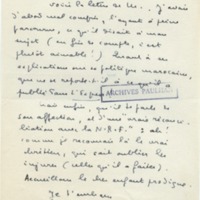 voici la lettre de M... j'avais
d'abord mal compris, l'ayant à peine
parcourue, ce qu'il disait à mon
sujet (en fin de compte, c'est
plutôt aimable!) Quant à ses
explications sur sa politique marocaine,
que ne se reporte-t-il à ce qu'il a
publié dans l'Espoir
ARCHIVES PAULHAN
mais enfin, qu'il te parle de
son affection, et d'une "vraie réconci-
liation avec la N.R.F." ! ah!
comme je reconnais là le vrai
chrétien, qui sait oublier les
injures (celles qu'il a faites).
Accueillons le cher enfant prodigue.
Je t'embrasse